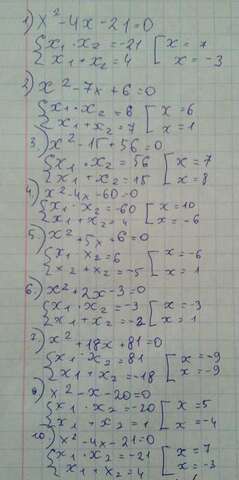 1) x²-4x-21=0
{x₁·x₂=-21 [x=7
{x₁+x₂=4 [x=-3
2) x²-7x+6=0
{x₁·x₂=6 [x=6
{x₁+x₂=7 [x=1
3) x²-15+56=0
{x₁·x₂=56 [x=7
{x₁+x₂=15 [x=8
4) x²-4x-60=0
{x₁·x₂=-60 [x=10
{x₁+x₂=4 [x=-6
5) x²+5x+6=0
{x₁·x₂=6 [x=-6
{x₂+x₂=-5 [x=1
6) x²+2x-3=0
{x₁·x₂=-3 [x=-3
{x₁+x₂=-2 [x=1
7) x²+18x+81=0
{x₁·x₂=81 [x=-9
{x₁+x₂=-18 [x=-9
9) x²-x-20=0
{x₁·x₂=-20 [x=5
{x₁+x₂=1 [x=-4
10) x²-4x-21=0
{x₁·x₂=-21 [x=7
{x₁+x₂=4 [x=-3